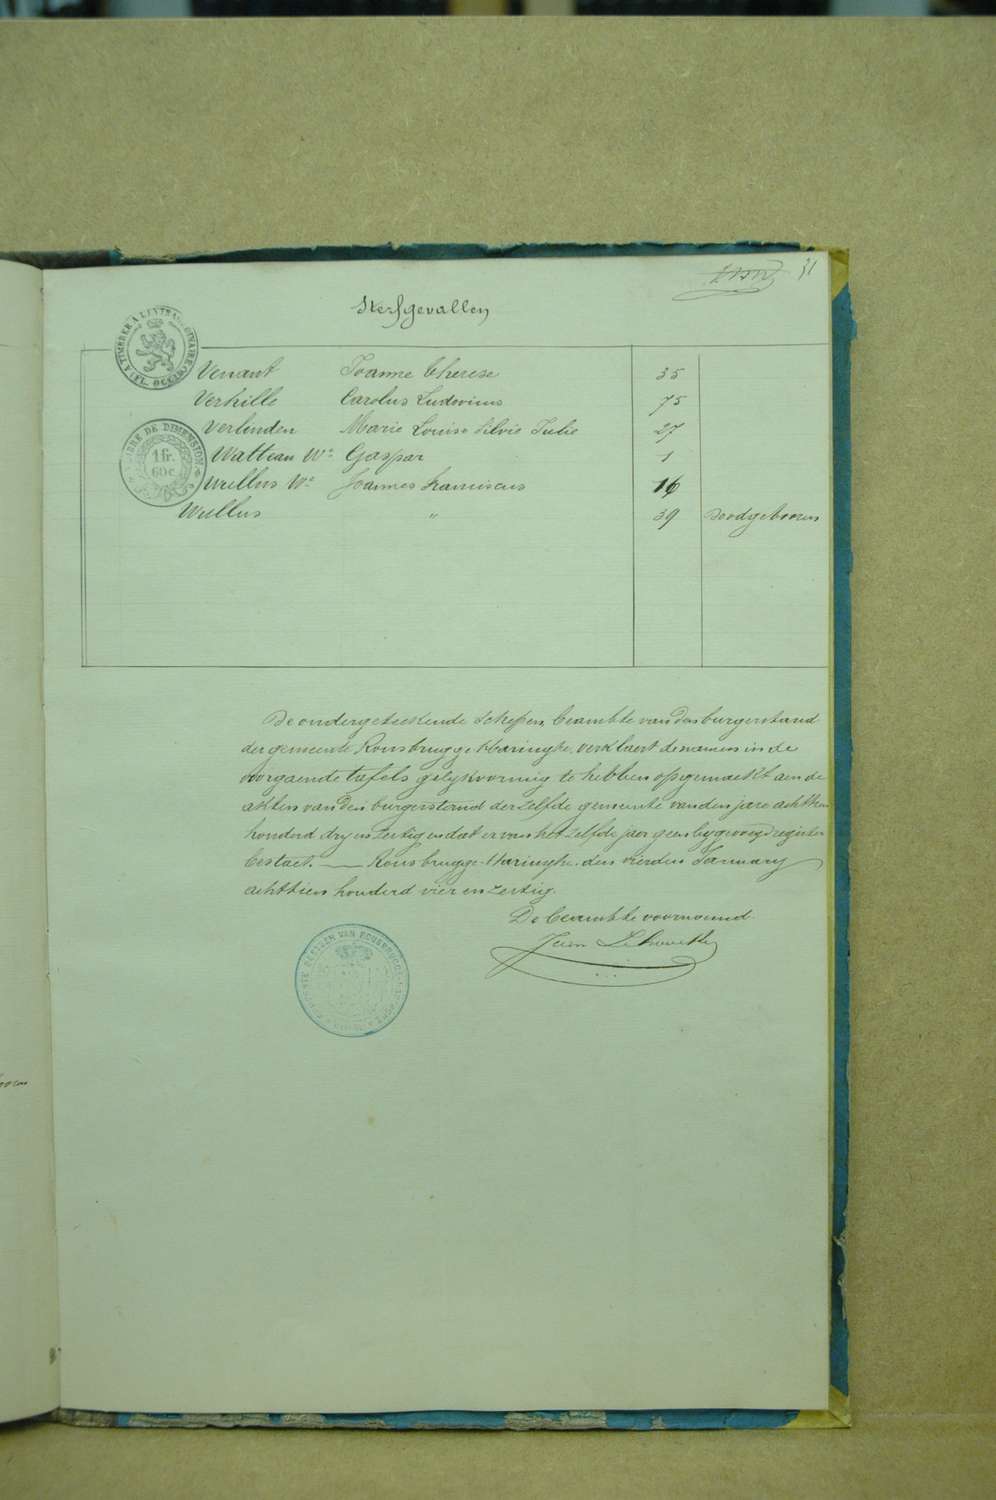 31
Sterfgevallen
A TIMBRER A L'EXTRAORDINAIRE
FL. OCCID.
Venant Joanne Therese 35
Verhille Carolus Ludovicus 75
Verlinden Marie Louise Silvie Julie 27
TIMBRE DE DIMENSION
1 fr. 60 c.
Watteau We Gaspar 1
Wullus We Joannes Franciscus 16
Wullus " 39 Doodgebooren
De ondergeteekende Schepen, beambte van den burgerstand
der gemeente Rousbrugge-Haringhe, verklaert de namen in de
voorgaende tafels gelykvormig te hebben opgemaekt aen de
akten van den burgerstand derzelfde gemeente van den jare achttien
honderd dry en zestig en dat er van hetzelfde jaer geen bygevoegd register
bestaet. — Rousbrugge-Haringhe, den vierden January
achttien honderd vier en zestig.
De beambte voornoemd